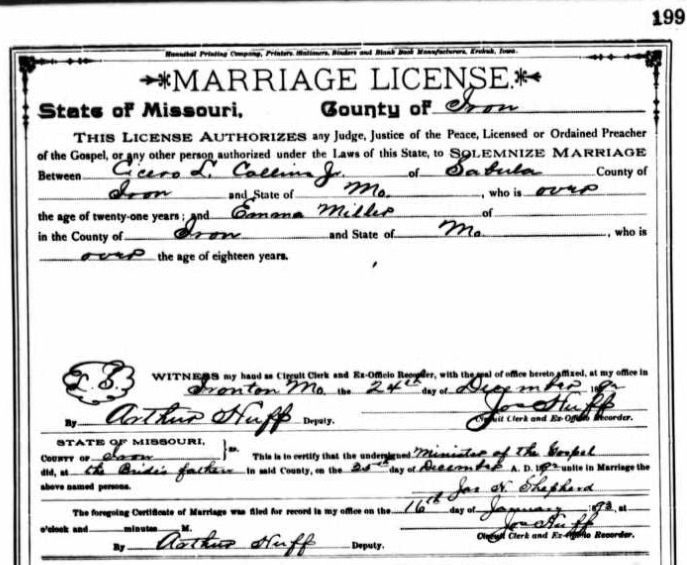 199
Hannibal Printing Company, Printers, Stationers, Binders and Blank Book Manufacturers, Keokuk, Iowa.
MARRIAGE LICENSE.
State of Missouri, County of Iron
THIS LICENSE AUTHORIZES any Judge, Justice of the Peace, Licensed or Ordained Preacher
of the Gospel, or any other person authorized under the Laws of this State, to SOLEMNIZE MARRIAGE
Between Cicero L. Collins Jr. of Sabula County of
Iron and State of Mo. , who is over
the age of twenty-one years; and Emma Miller of
in the County of Iron and State of Mo. , who is
over the age of eighteen years.
L S. WITNESS my hand as Circuit Clerk and Ex-Officio Recorder, with the seal of office hereto affixed, at my office in
Ironton Mo. the 24th day of December 1892
By Arthur Huff Deputy. Jos Huff
Circuit Clerk and Ex-Officio Recorder.
STATE OF MISSOURI,
COUNTY OF Iron } ss. This is to certify that the undersigned Minister of the Gospel
did, at the Brides father in said County, on the 25th day of December A. D. 1892 unite in Marriage the
above named persons.
Jas H. Shepherd
The foregoing Certificate of Marriage was filed for record in my office on the 16th day of January 1893, at
o'clock and minutes M. Jos Huff
By Arthur Huff Deputy. Circuit Clerk and Ex-Officio Recorder.